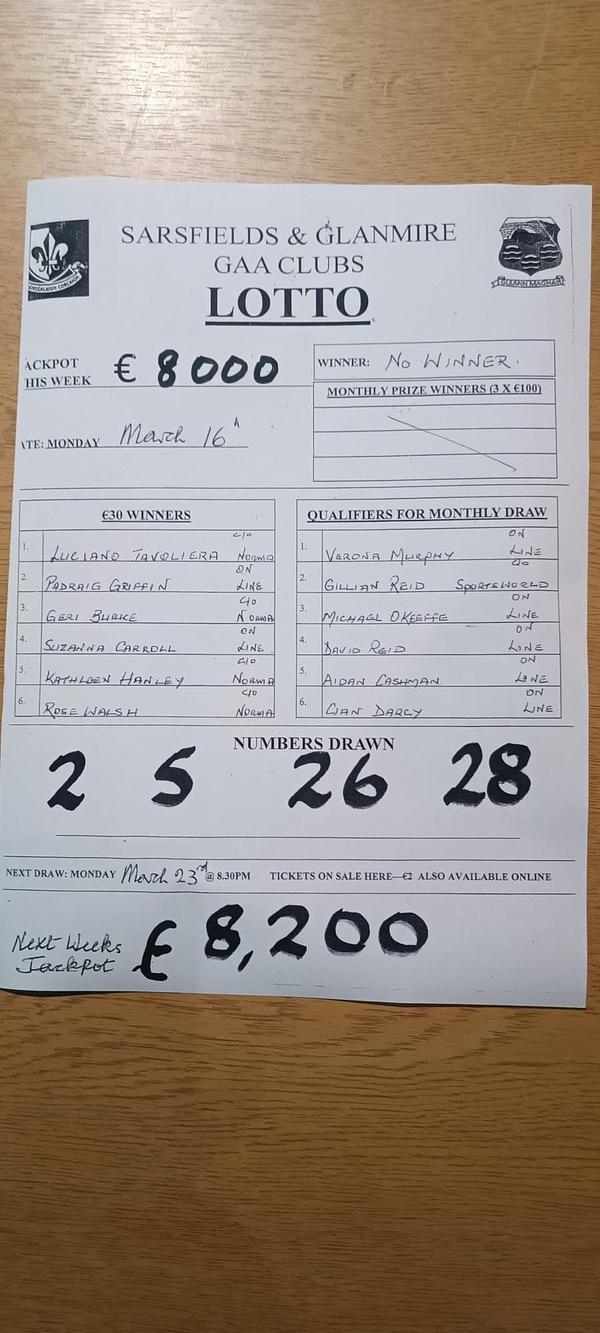 SARSFIELDS & GLANMIRE
GAA CLUBS
LOTTO
GLEANN MAGHAIR
ACKPOT
HIS WEEK
€ 8000
WINNER: NO WINNER.
MONTHLY PRIZE WINNERS (3 X €100)
ATE: MONDAY March 16th
€30 WINNERS
1. LUCIANO TAVOLIERA c/o NORMA
2. PADRAIG GRIFFIN ON LINE
3. GERI BURKE c/o NORMA
4. SUZANNA CARROLL ON LINE
5. KATHLEEN HANLEY c/o NORMA
6. ROSE WALSH c/o NORMA
QUALIFIERS FOR MONTHLY DRAW
1. VERONA MURPHY ON LINE
2. GILLIAN REID c/o SPORTSWORLD
3. MICHAEL OKEEFFE ON LINE
4. DAVID REID ON LINE
5. AIDAN CASHMAN ON LINE
6. CIAN DARCY ON LINE
NUMBERS DRAWN
2 5 26 28
NEXT DRAW: MONDAY March 23rd @ 8.30PM TICKETS ON SALE HERE—€2 ALSO AVAILABLE ONLINE
Next Weeks
Jackpot
€ 8,200